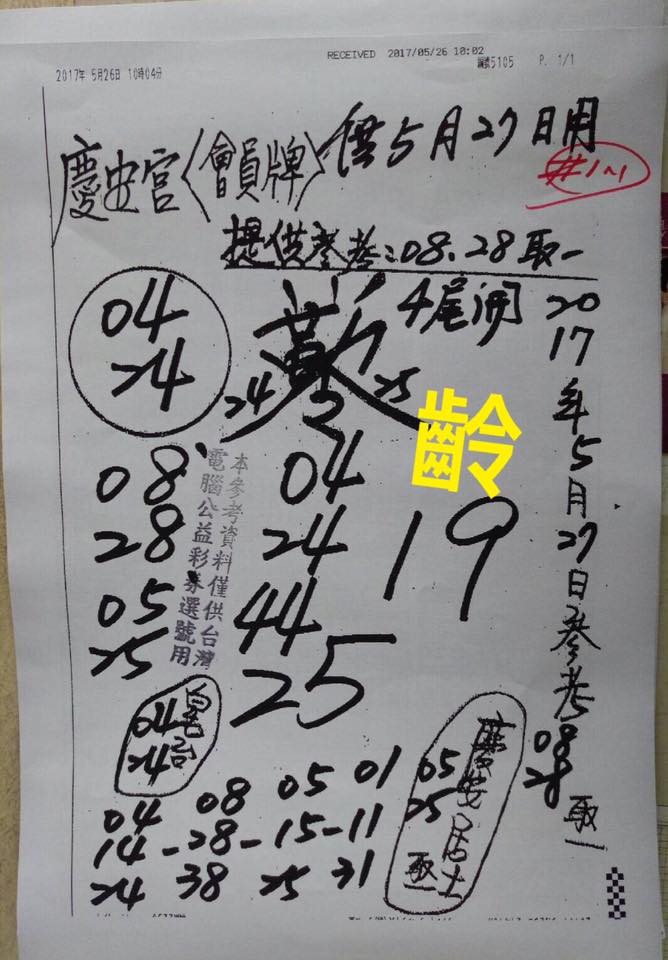 RECEIVED 2017/05/26 10:02
2017年 5月26日 10時04分
編號5105 P. 1/1
慶安宮〈會員牌〉供5月27日用
#1~1
提供參考:08.28取一
4尾開
04
24
24 25
齡
2017年5月27日參考
08
28
取一
08
28
05
25
本參考資料僅供台灣
電腦公益彩券選號用
04
24
44
25
19
04
24
慶安居士
05
25
取一
04 08 05 01
14-28-15-11
24 38 25 31